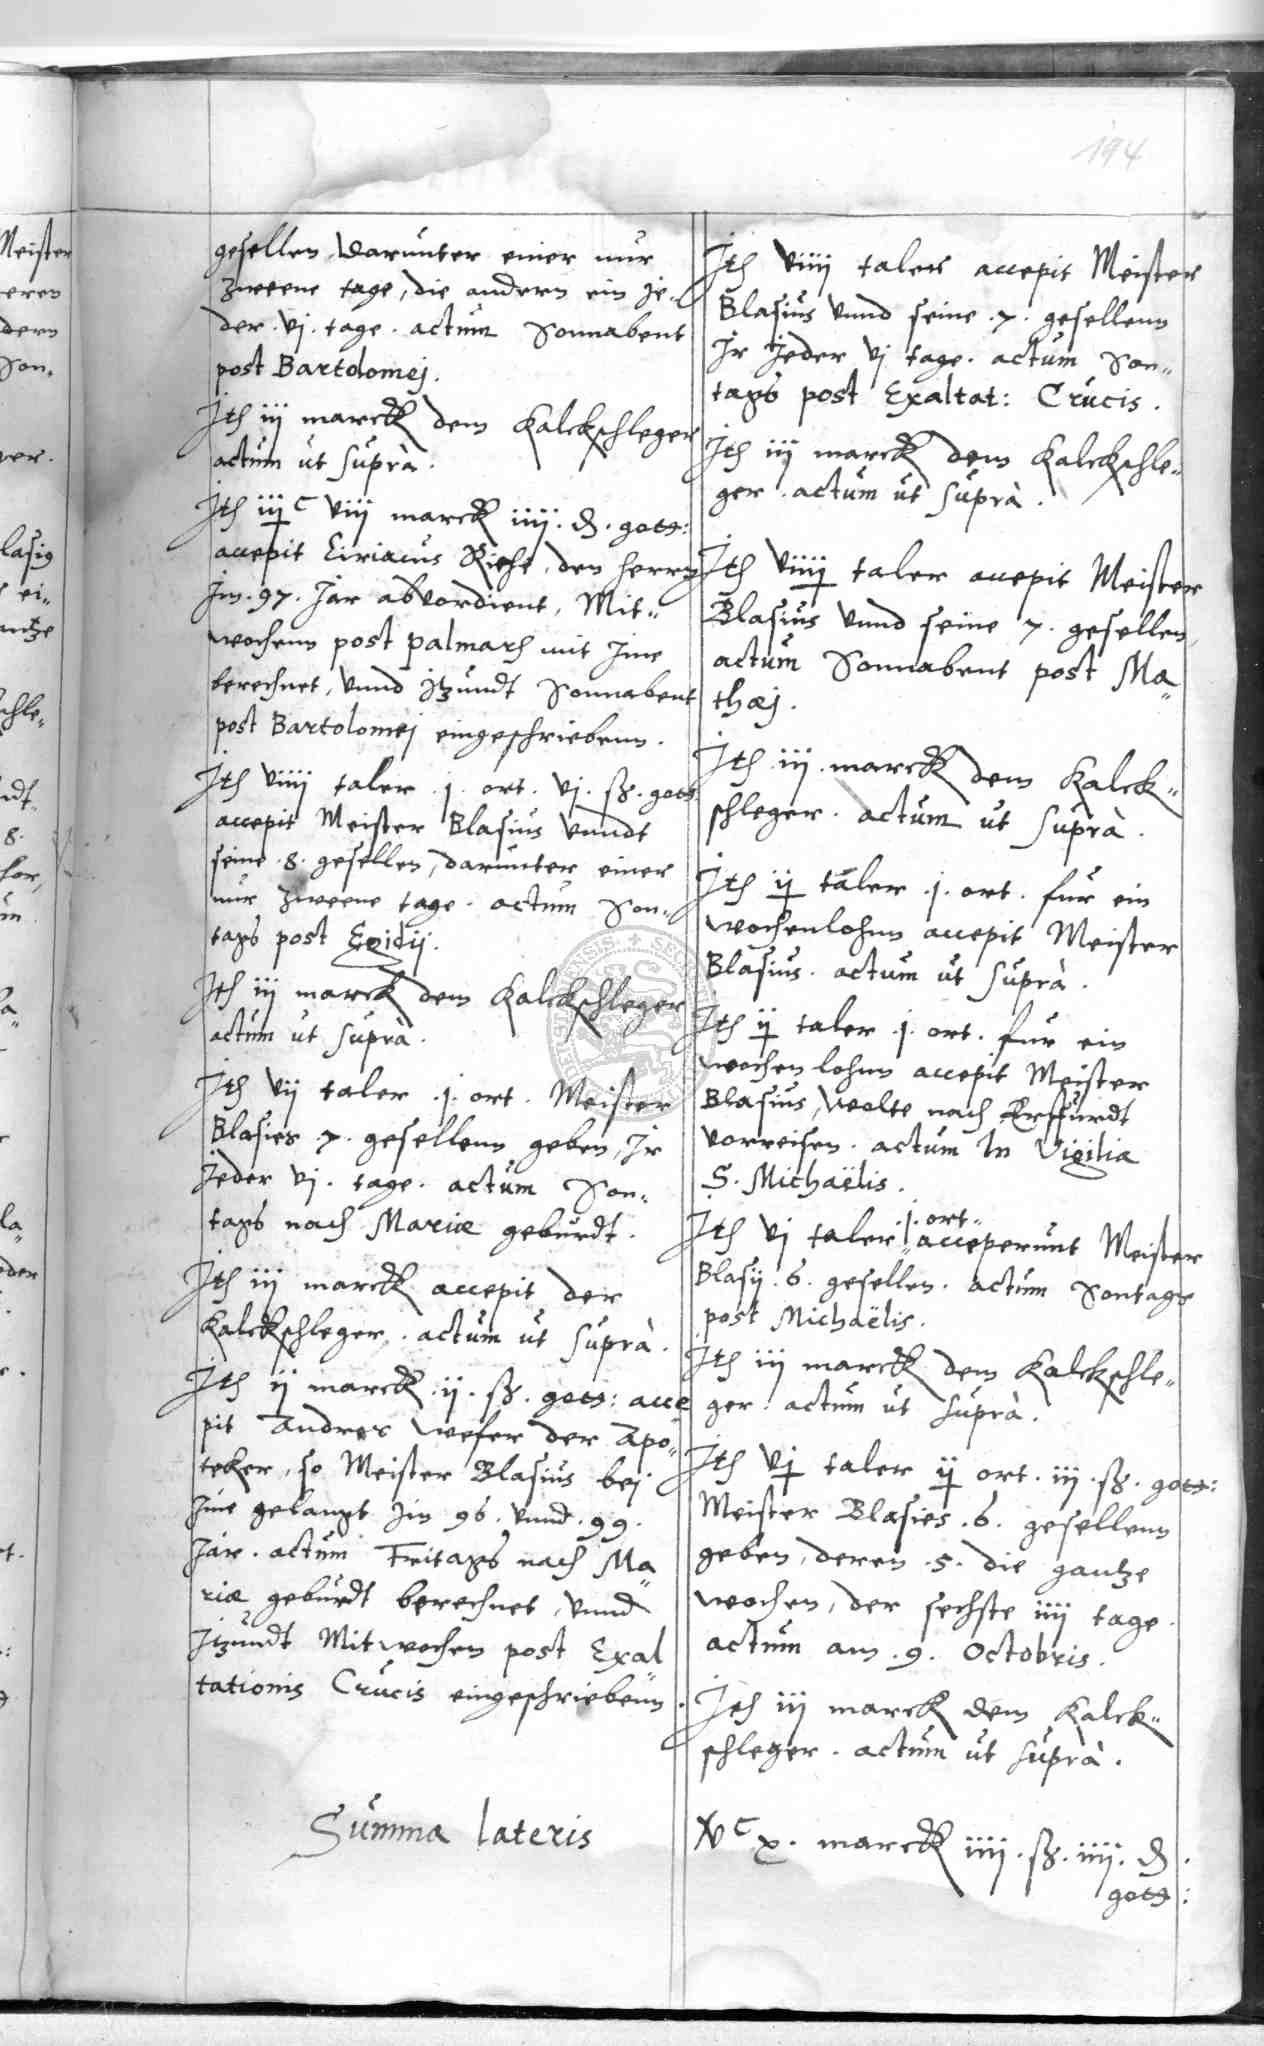 194
gesellen, darunter einer nur
zweene tage, die andern ein je„
der .vj. tage. actum Sonnabent
post Bartolomej.
Jth iij marck dem Kalckschleger
actum ut suprà.
Jth iijC viij marck iiij. d. gots:
accepit Ciriacus Riche, den herrn
Jm .97. Jar abvordient, Mit„
wochenn post palmarum mit Jme
berechnet, vnnd Jtzundt Sonnabent
post Bartolomej eingeschriebenn.
Jth viiij taler .j. ort. vj. ß. gots
accepit Meister Blasius vnndt
seine .8. gesellen, darunter einer
nur zweene tage. actum Son„
tags post Egidij.
Jth iij marck dem Kalckschleger
actum ut suprà.
Jth vij taler .j. ort. Meister
Blasies .7. gesellenn geben, Jr
Jeder vj. tage. actum Son„
tags nach Mariæ geburdt.
Jth iij marck accepit der
Kalckschleger. actum ut suprà.
Jth ij marck .ij. ß. gots: acce
pit Andres Wefer der Apo„
teker, so Meister Blasius bej
Jme gelangt Jm 96. vnnd .99.
Jare. actum Fritags nach Ma„
riæ geburdt berechnet, vnnd
Jtzundt Mitwochen post Exal
tationis Crucis eingeschriebenn.
Summa lateris
Jth viiij taler accepit Meister
Blasius vnnd seine .7. gesellenn
Jr Jeder vj tage. actum Son„
tags post Exaltat: Crucis.
Jth iij marck dem Kalckschle„
ger. actum ut suprà.
Jth viiij taler accepit Meister
Blasius vnnd seine 7. gesellen,
actum Sonnabent post Ma„
thæj.
Jth iij marck dem Kalck„
schleger. actum ut suprà.
Jth ij taler .j. ort. fur ein
wochenlohnn accepit Meister
Blasius. actum ut suprà.
Jth ij taler .j. ort. fur ein
wochen lohnn accepit Meister
Blasius, wolte nach Erffurdt
vorreisen. actum In Vigilia
S. Michaëlis.
Jth vj taler .j. ort„ acceperunt Meister
Blasij .6. gesellen. actum Sontags
post Michaëlis.
Jth iij marck dem Kalckschle„
ger. actum ut suprà.
Jth vj taler ij ort. iij. ß. gots:
Meister Blasies .6. gesellenn
geben, deren .5. die gantze
wochen, der sechste iiij tage
actum am .9. Octobris.
Jth iij marck dem Kalck„
schleger. actum ut suprà.
x. marck iiij. ß. iiij. d.
gots: